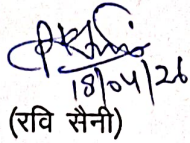 18/04/26
(रवि सैनी)